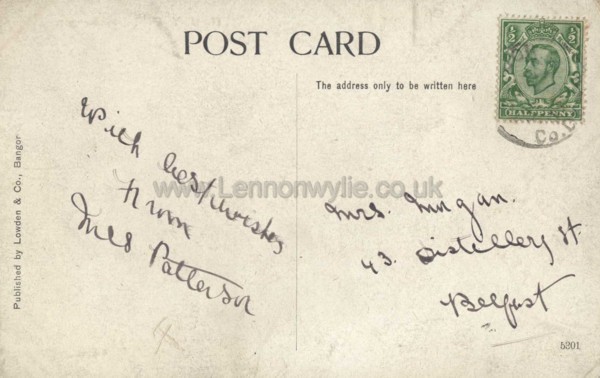 POST CARD
The address only to be written here
½ ½
HALFPENNY
Co.
With best wishes
from
Mrs Patterson
www.Lennonwylie.co.uk
Mrs. Mogan.
43. Distillery St.
Belfast
Published by Lowden & Co., Bangor
5201